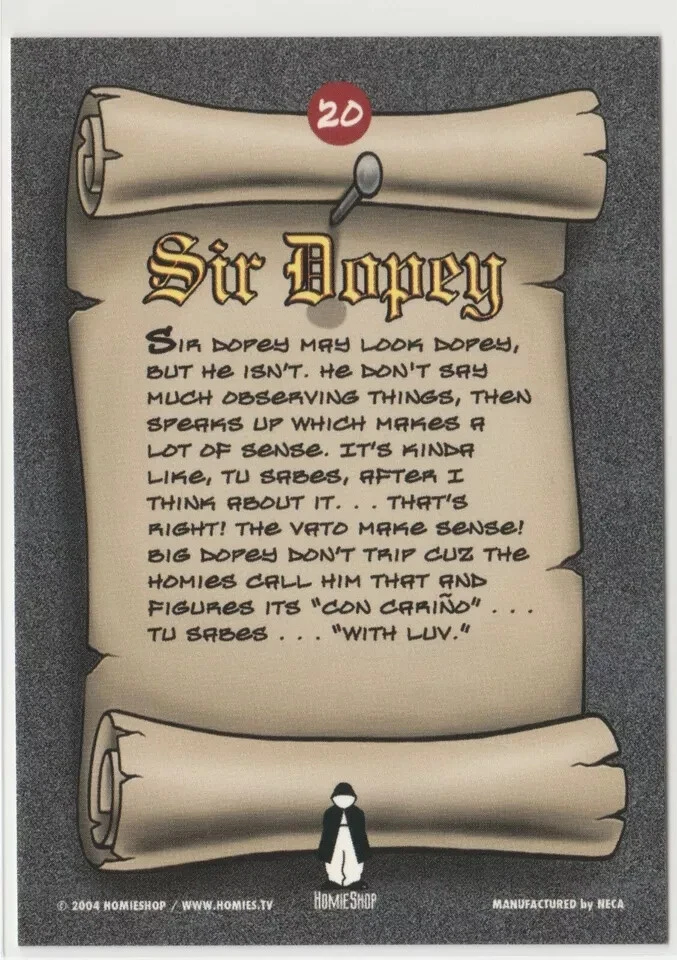 20
Sir Dopey
SIR DOPEY MAY LOOK DOPEY,
BUT HE ISN'T. HE DON'T SAY
MUCH OBSERVING THINGS, THEN
SPEAKS UP WHICH MAKES A
LOT OF SENSE. IT'S KINDA
LIKE, TU SABES, AFTER I
THINK ABOUT IT. . . THAT'S
RIGHT! THE VATO MAKE SENSE!
BIG DOPEY DON'T TRIP CUZ THE
HOMIES CALL HIM THAT AND
FIGURES ITS "CON CARIÑO" . . .
TU SABES . . . "WITH LUV."
© 2004 HOMIESHOP / WWW.HOMIES.TV
HOMIESHOP
MANUFACTURED by NECA